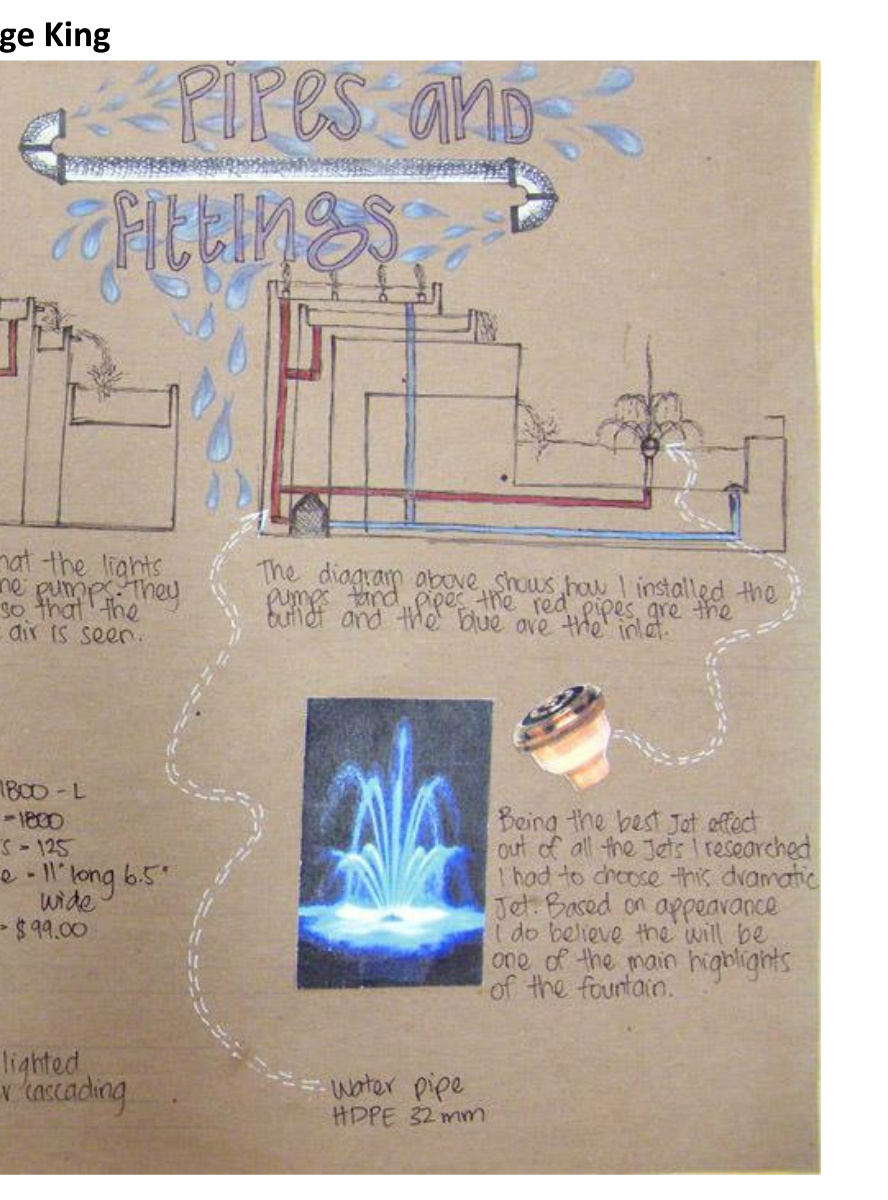 ge King
Pipes and
fittings
hat the lights
ne pumps. They
so that the
air is seen.
The diagram above shows how I installed the
pumps tand pipes the red pipes are the
outlet and the blue are the inlet.
1800 - L
= 1800
s - 125
e - 11" long 6.5"
wide
- $99.00
Being the best Jet effect
out of all the Jets I researched
I had to choose this dramatic
Jet. Based on appearance
I do believe the will be
one of the main highlights
of the fountain.
lighted
r cascading
Water pipe
HDPE 32mm